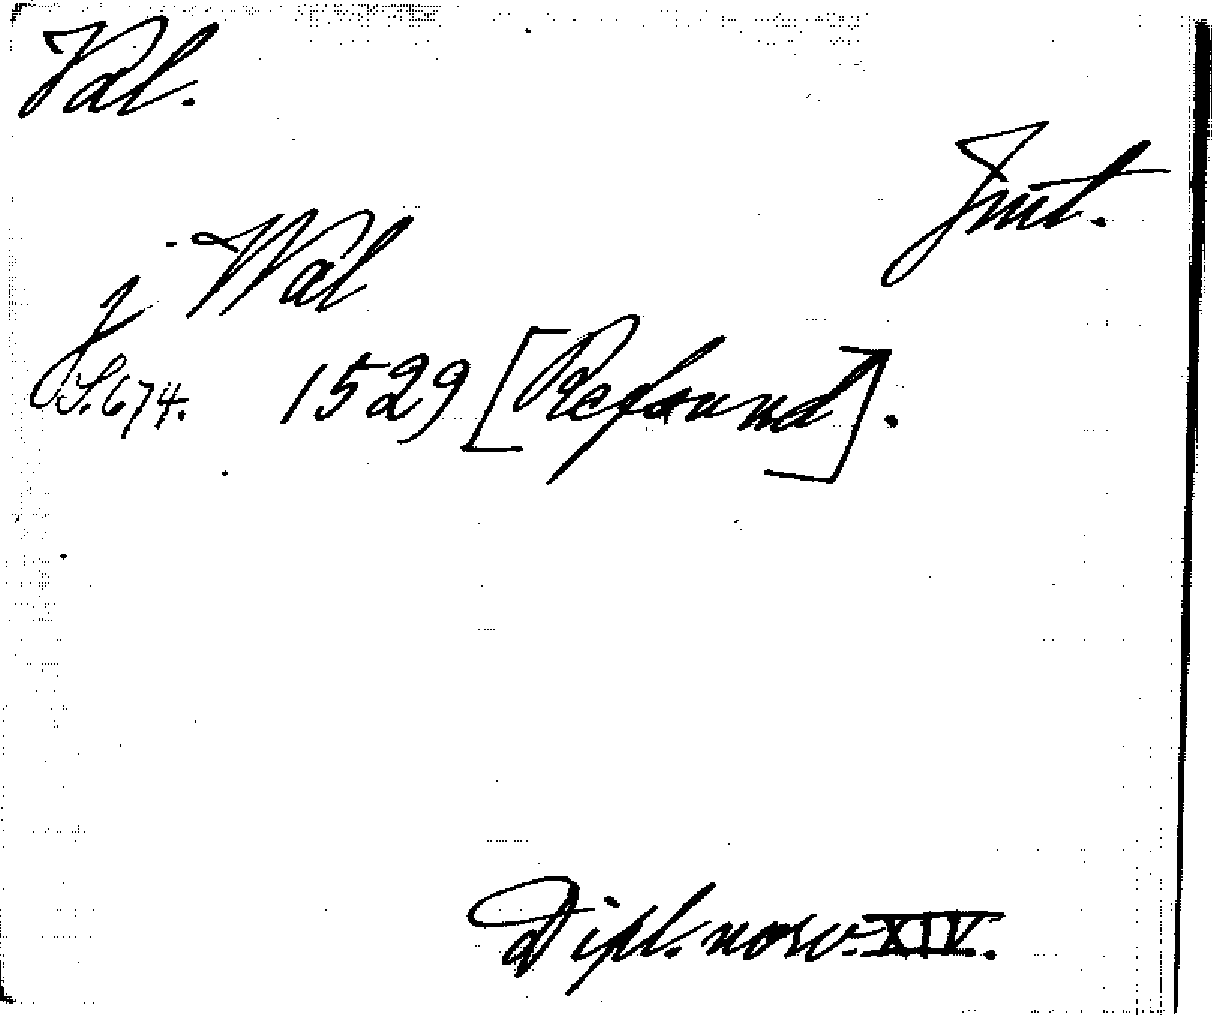 Val.
Jmt.
j Wal
S. 674. 1529 [Refsund].
Dipl. norv. XIV.